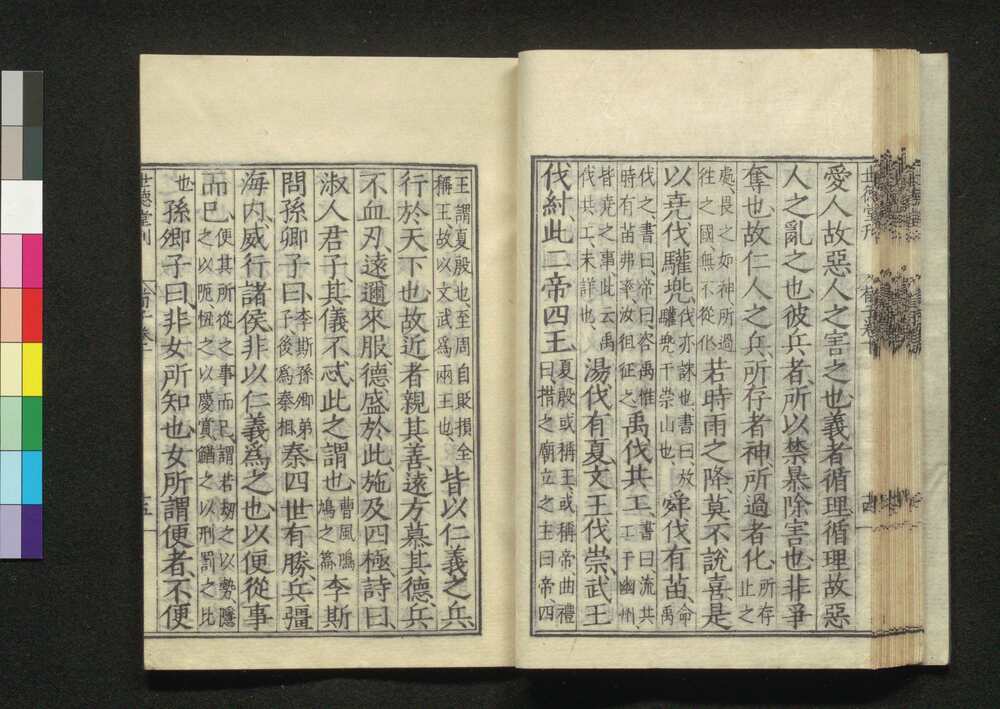 愛人故惡人之害之也義者循理循理故惡
人之亂之也彼兵者所以禁暴除害也非爭
奪也故仁人之兵所存者神所過者化所存止之
處畏之如神所過往之國無不從化若時雨之降莫不說喜是
以堯伐驩兠伐亦誅也書曰放驩兠于崇山也舜伐有苗命禹
伐之書曰帝曰咨禹惟時有苗弗率汝徂征之禹伐共工書曰流共工于幽州
皆堯之事此云禹伐共工未詳也湯伐有夏文王伐崇武王
伐紂此二帝四王夏殷或稱王或稱帝曲禮曰措之廟立之主曰帝四
王謂夏殷也至周自貶損全稱王故以文武爲兩王也皆以仁義之兵
行於天下也故近者親其善遠方慕其德兵
不血刃遠邇來服德盛於此施及四極詩曰
淑人君子其儀不忒此之謂也曹風鳲鳩之篇李斯
問孫卿子曰李斯孫卿弟子後爲秦相秦四世有勝兵彊
海內威行諸侯非以仁義爲之也以便從事
而已便其所從之事而已謂若劫之以勢隱之以阨忸之以慶賞鰌之以刑罰之比
也孫卿子曰非女所知也女所謂便者不便
世德堂刊